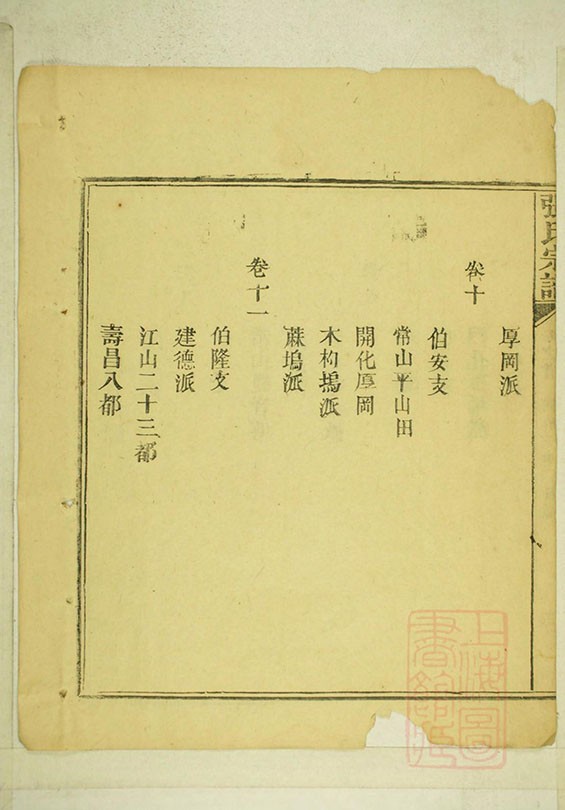 張氏宗譜
厚岡派
卷十
伯安支
常山平山田
開化厚岡
木杓塢派
蔴塢派
卷十一
伯隆支
建德派
江山二十三都
壽昌八都
上海圖
書館藏